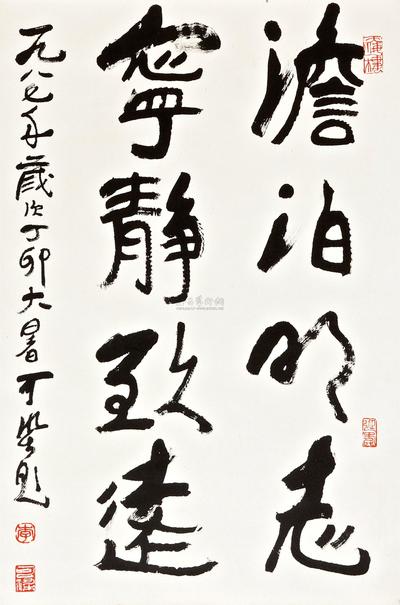 澹泊明志
寧靜致遠
一九八七年歲次丁卯大暑可染題